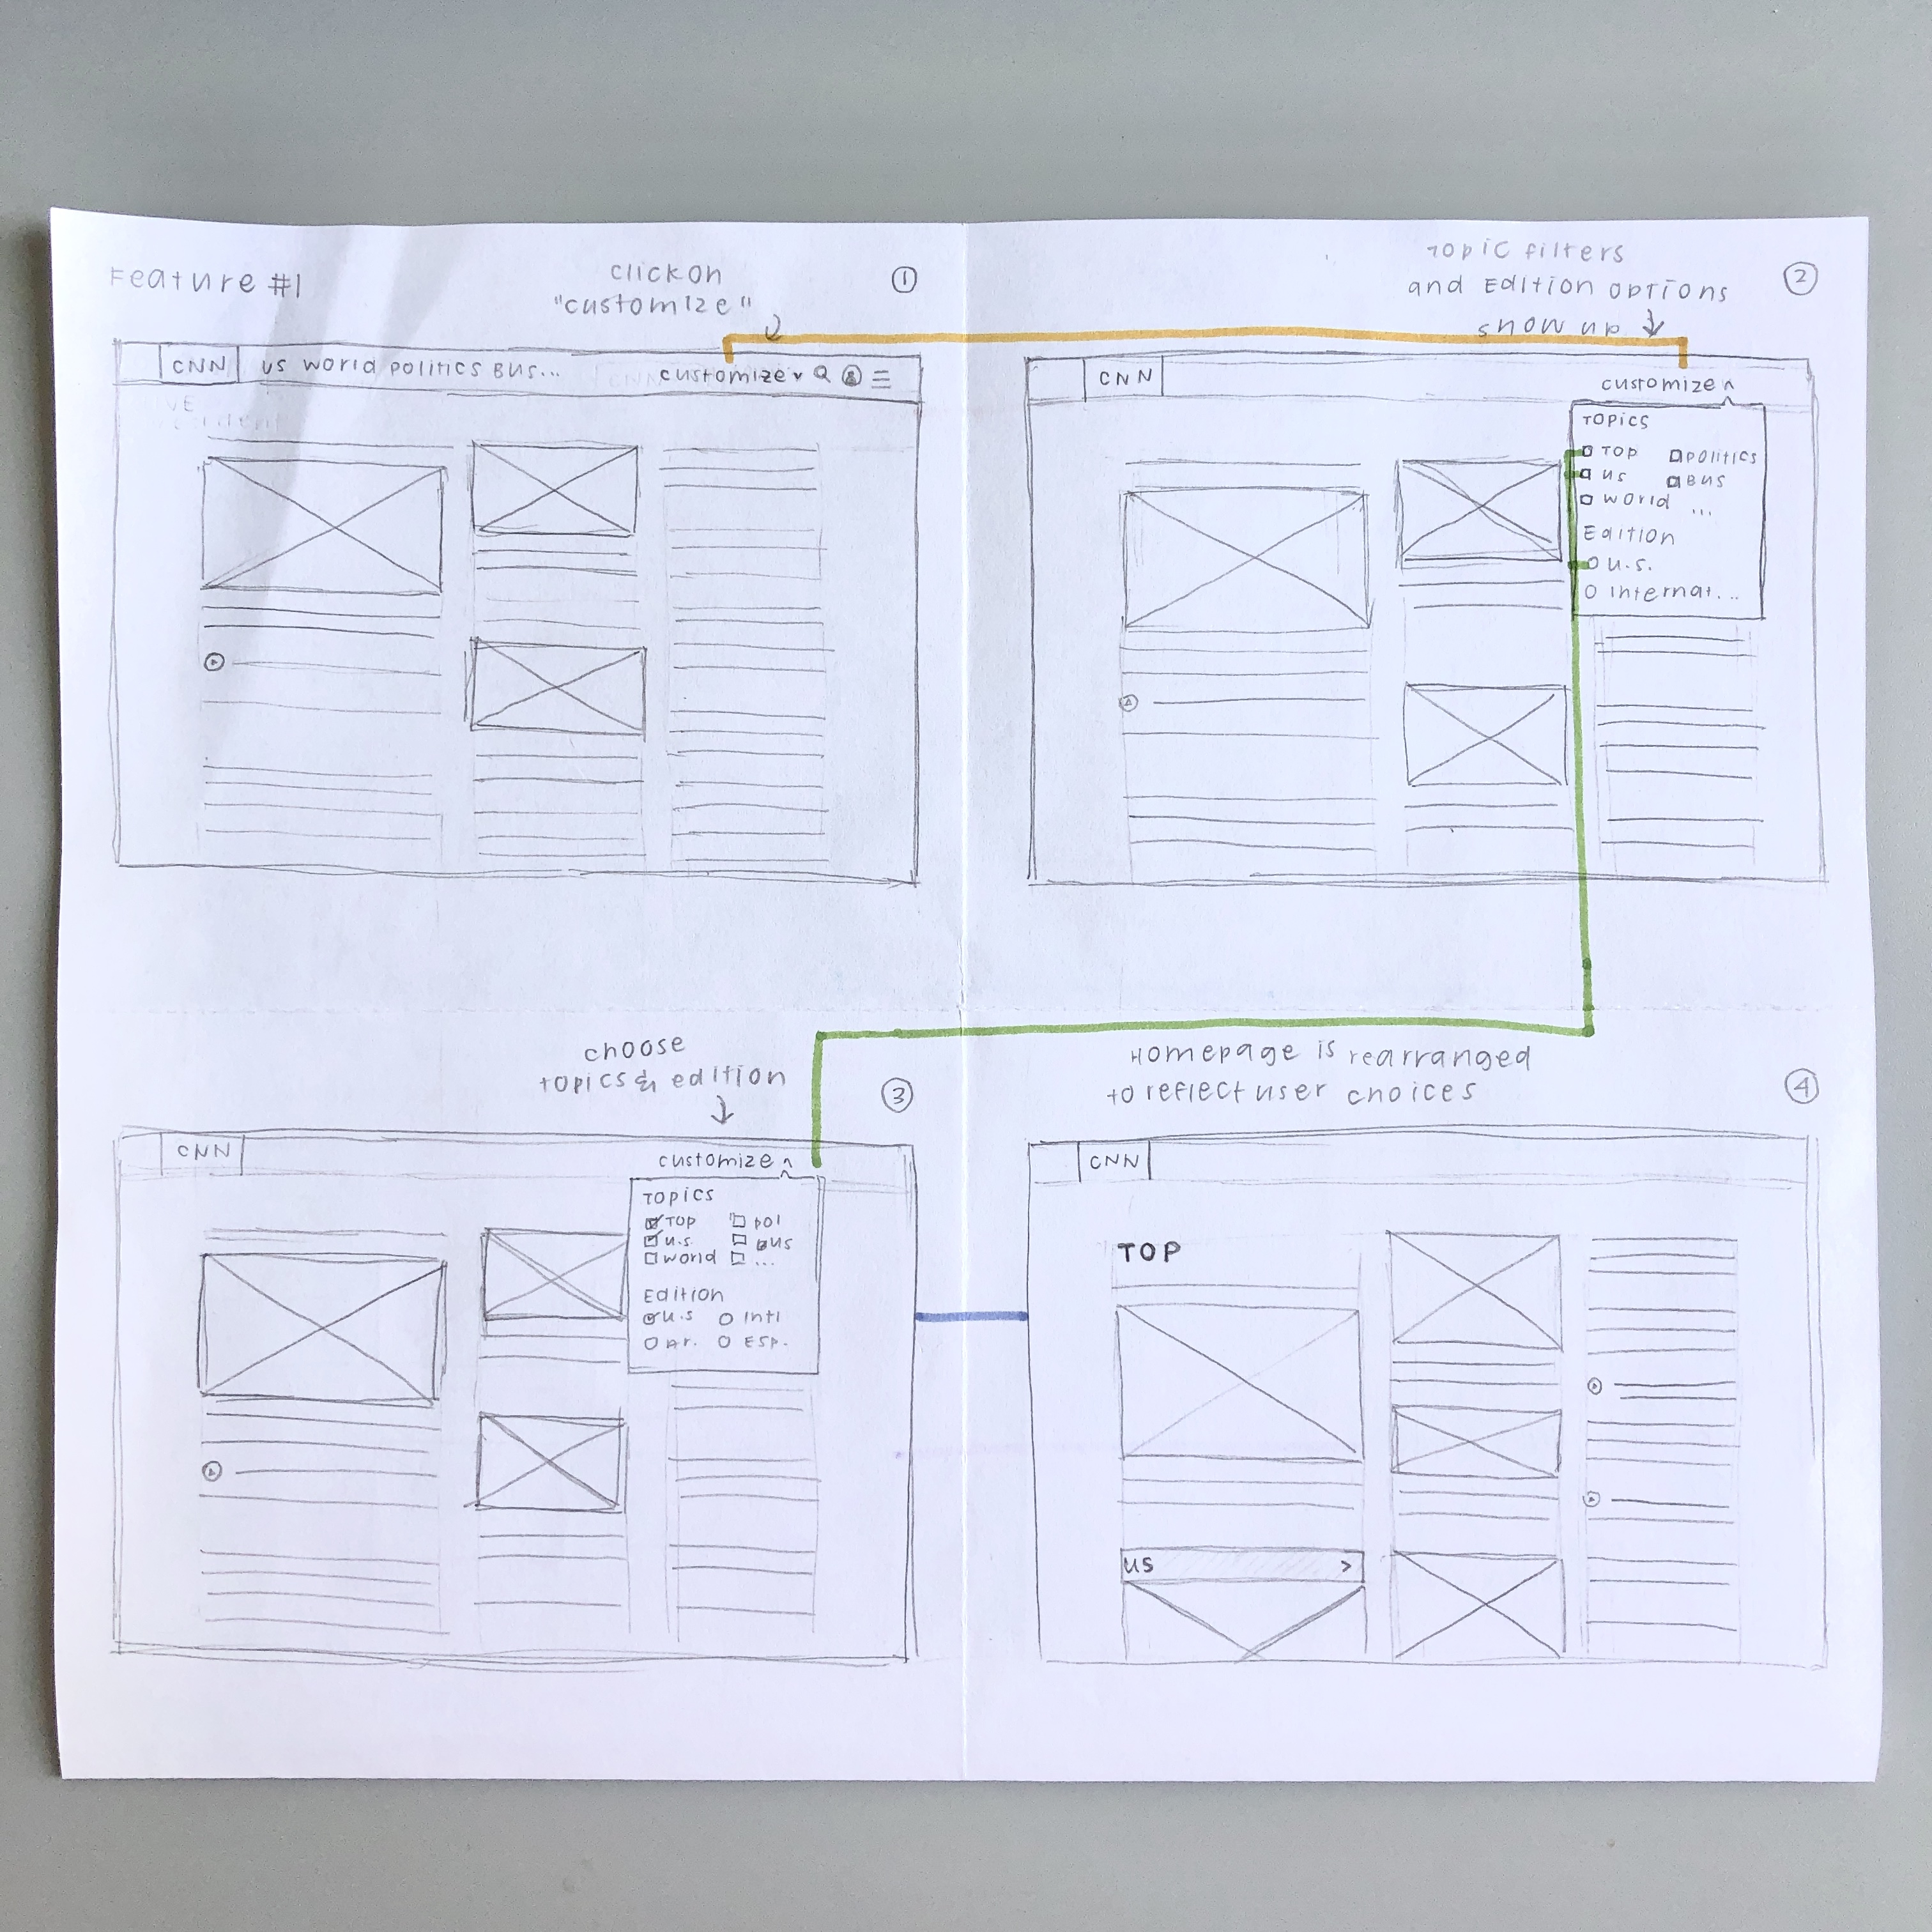 Feature #1
click on
"customize"
1
CNN
us world politics Bus...
customize
Topic filters
and Edition options
show up
2
CNN
customize
Topics
Top
Politics
us
Bus
world
...
Edition
u.s.
Internat...
choose
topics & edition
3
CNN
customize
Topics
Top
pol
u.s.
Bus
world
...
Edition
u.s
Intl
Ar.
Esp.
Homepage is rearranged
to reflect user choices
4
CNN
TOP
us >